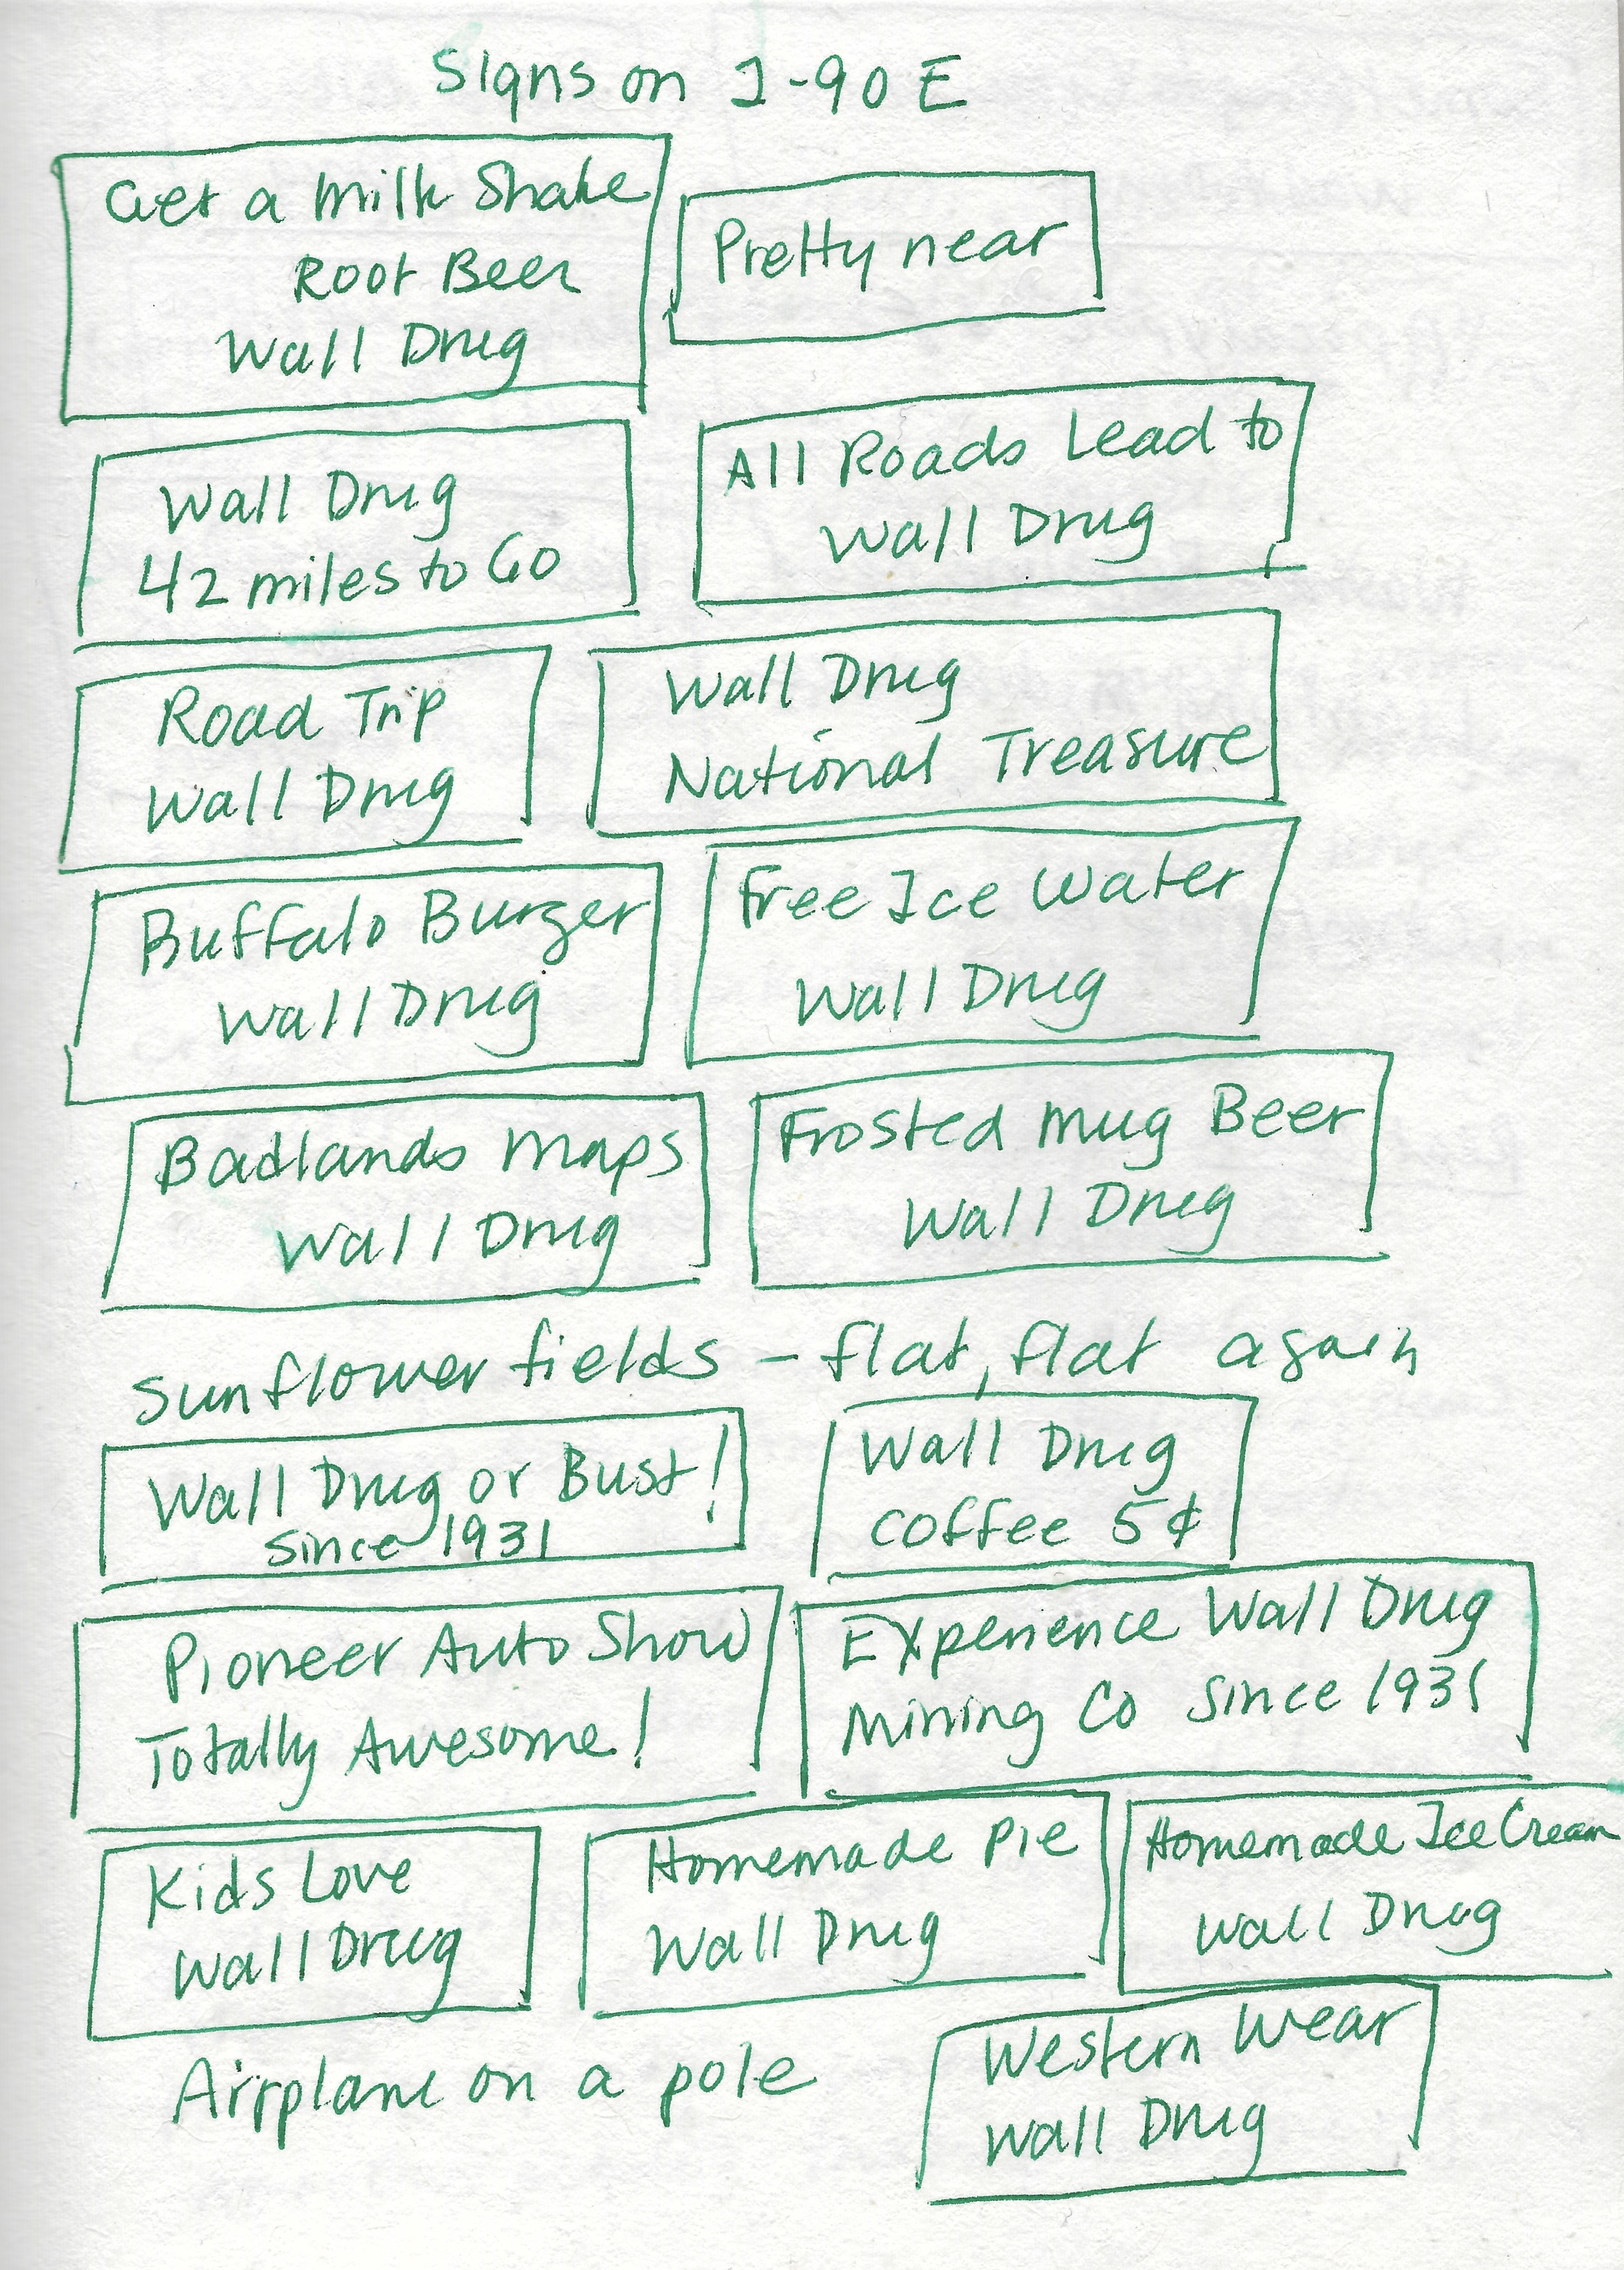 Signs on I-90 E
Get a Milk Shake
Root Beer
Wall Drug
Pretty near
Wall Drug
42 miles to Go
All Roads Lead to
Wall Drug
Road Trip
Wall Drug
Wall Drug
National Treasure
Buffalo Burger
Wall Drug
Free Ice Water
Wall Drug
Badlands Maps
Wall Drug
Frosted Mug Beer
Wall Drug
Sunflower fields – flat, flat again
Wall Drug or Bust!
Since 1931
Wall Drug
Coffee 5¢
Pioneer Auto Show
Totally Awesome!
Experience Wall Drug
Mining Co Since 1931
Kids Love
Wall Drug
Homemade Pie
Wall Drug
Homemade Ice Cream
Wall Drug
Airplane on a pole
Western Wear
Wall Drug